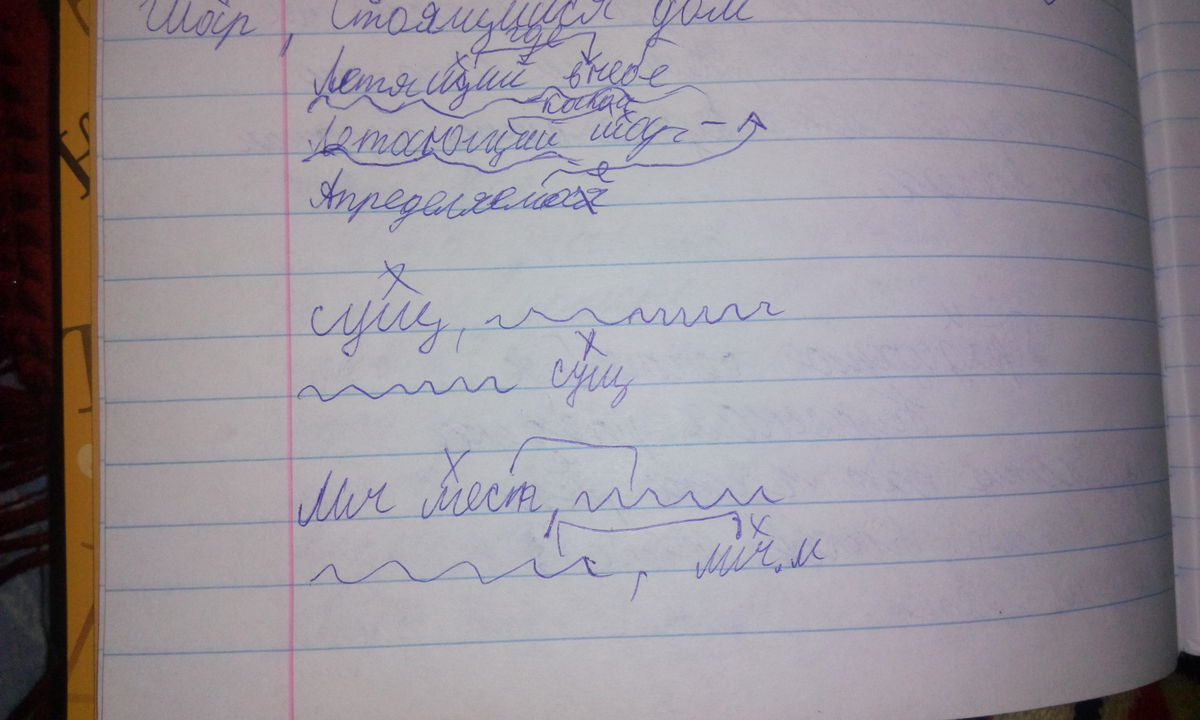 Шар, Стоящийся дом
где
Летящий в небе
какой
Летающий шар
Апределяемое
х
сущ,
х
сущ
х
Лич мест,
х
лич. м